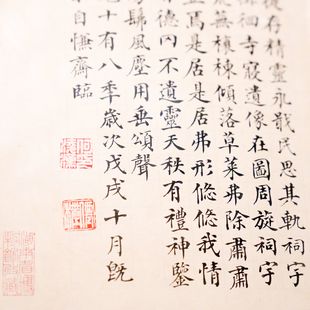 存精靈永戢民思其軌祠宇
徊寺寢遺像在圖周旋祠宇
棟傾落草萊弗除肅肅
焉是居是居弗形悠悠我情
德罔不遺靈天秩有禮神鑒
髴風塵用垂頌聲
十有八季歲次戊戌十月既
自慊齋臨